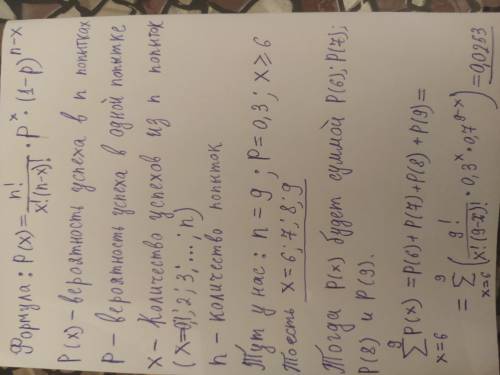 Формула: P(x) = n!/(x!(n-x)!) · p^x · (1-p)^(n-x)
P(x) - вероятность успеха в n попытках
P - вероятность успеха в одной попытке
x - Количество успехов из n попыток
(x=0,1; 2; 3; ...; n)
n - количество попыток
Тут у нас: n = 9; p = 0,3; x ≥ 6
То есть x = 6; 7; 8; 9
Тогда P(x) будет суммой P(6); P(7);
P(8) и P(9).
∑_{x=6}^{9} P(x) = P(6) + P(7) + P(8) + P(9) =
= ∑_{x=6}^{9} (9!/(x!(9-x)!) · 0,3^x · 0,7^(9-x)) = 0,0253